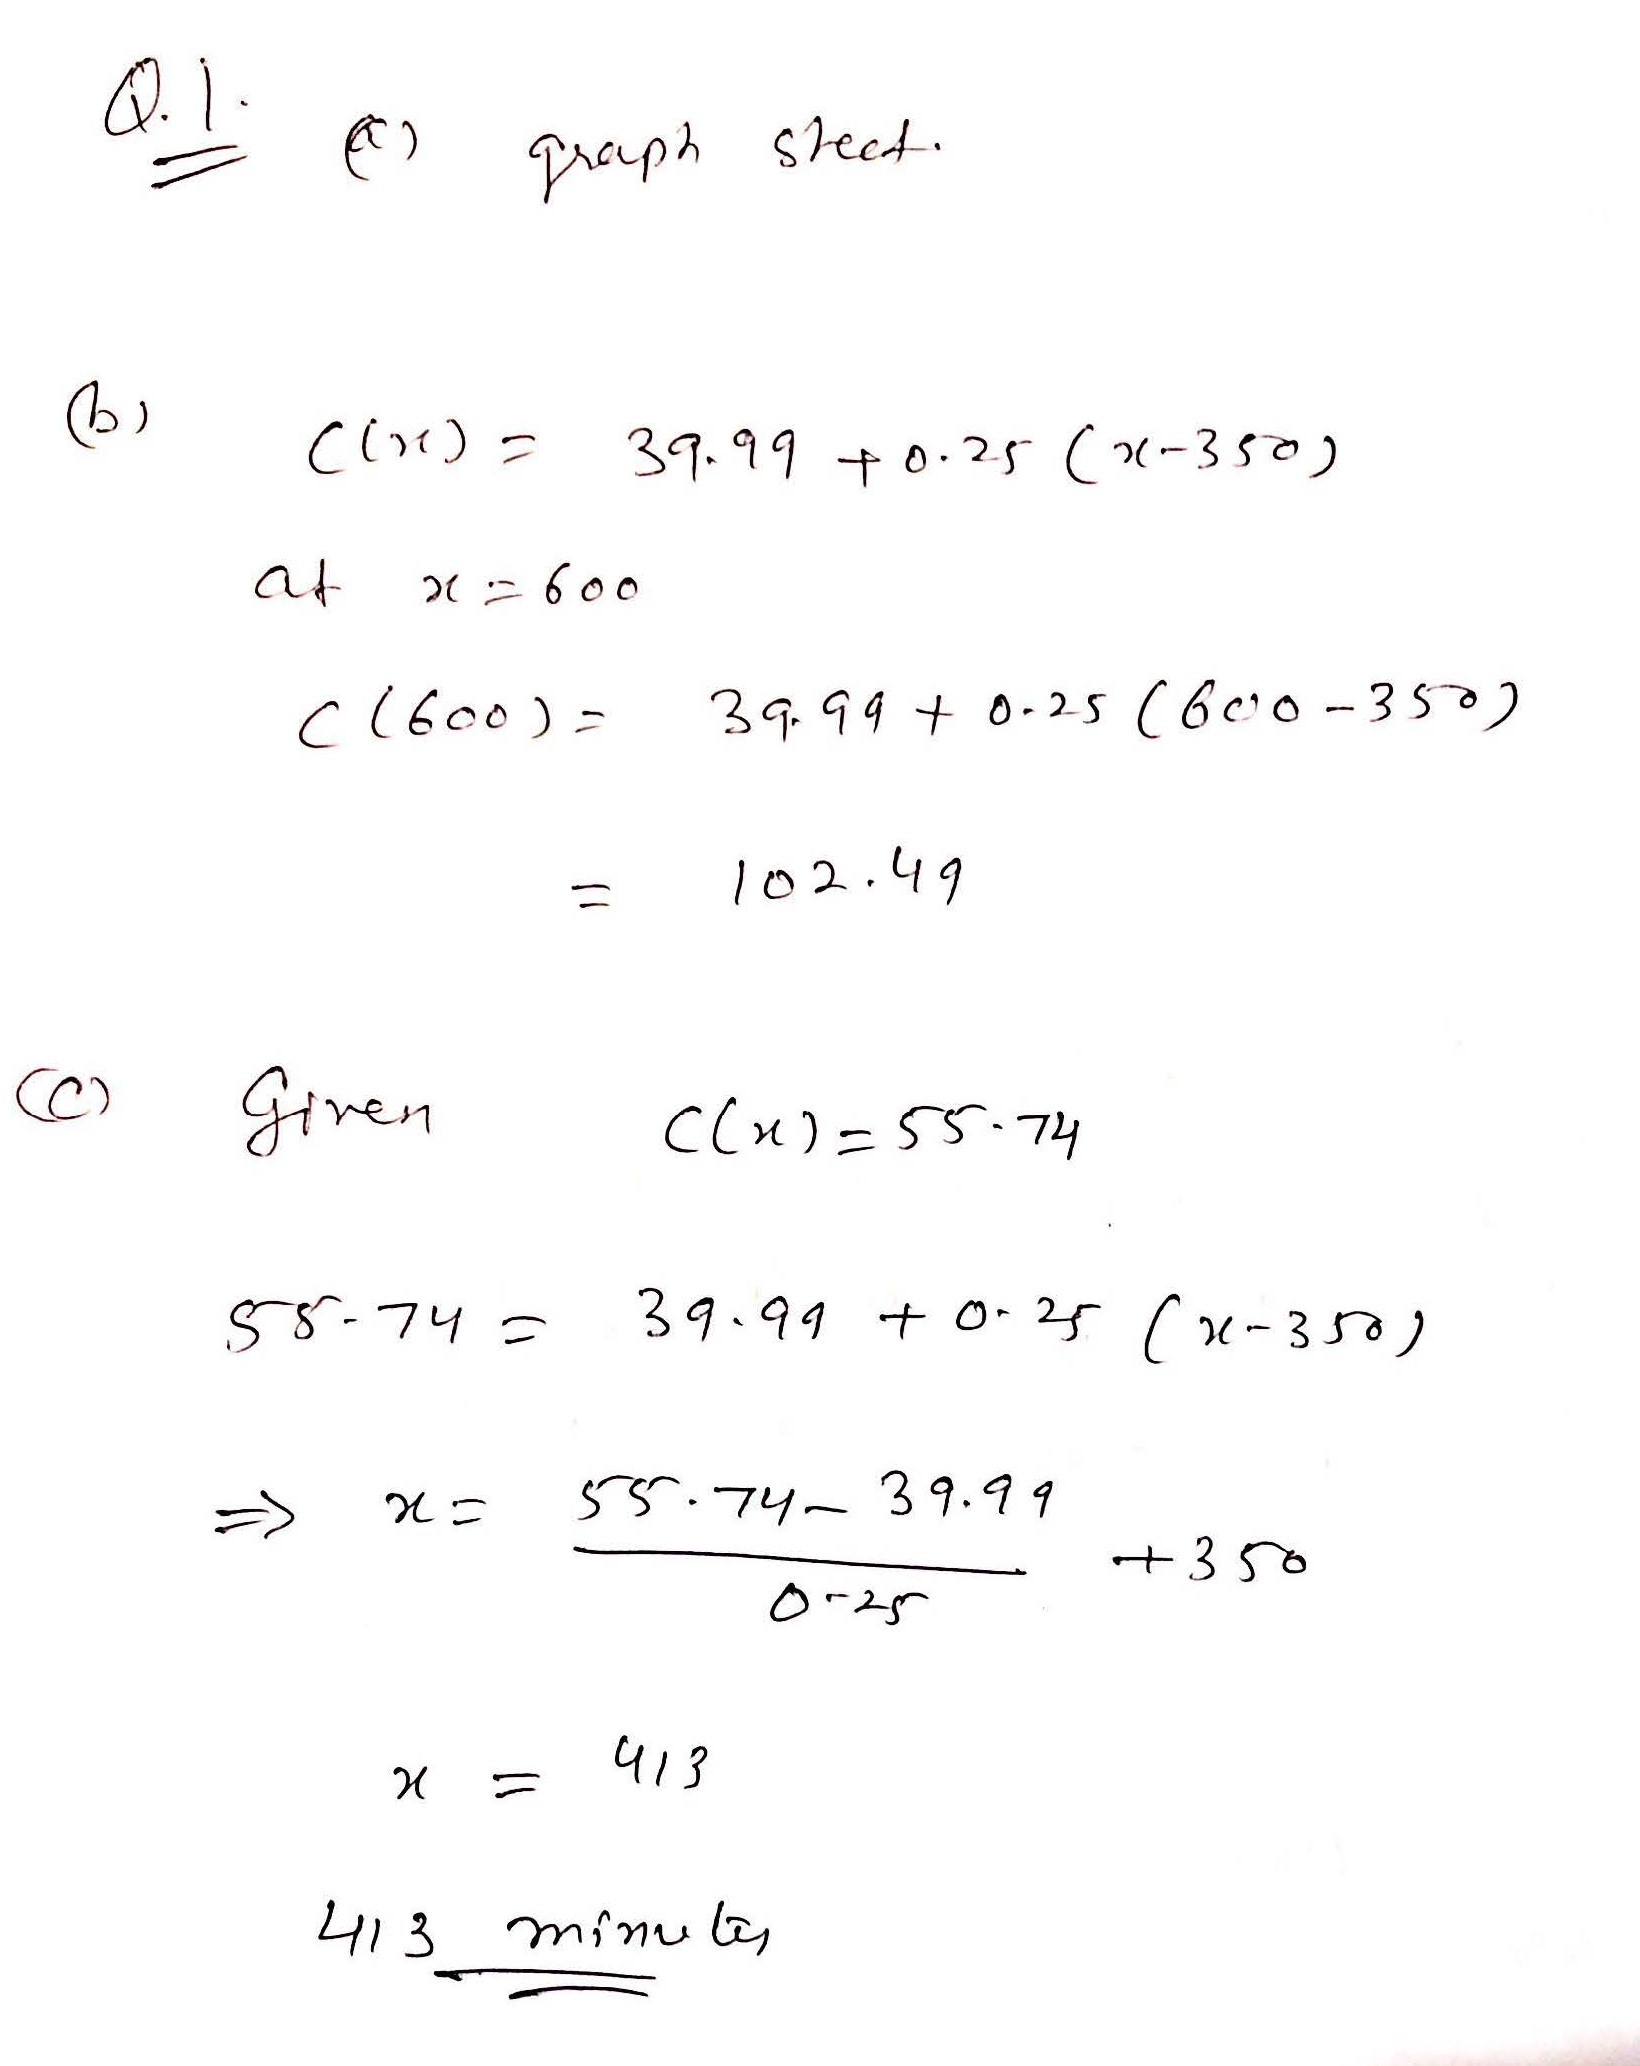 Q.1. (a) graph sheet.
(b) C(x) = 39.99 + 0.25 (x-350)
at x = 600
C(600) = 39.99 + 0.25 (600-350)
= 102.49
(c) Given C(x) = 55.74
55.74 = 39.99 + 0.25 (x-350)
⇒ x = 55.74 - 39.99 / 0.25 + 350
x = 413
413 minutes